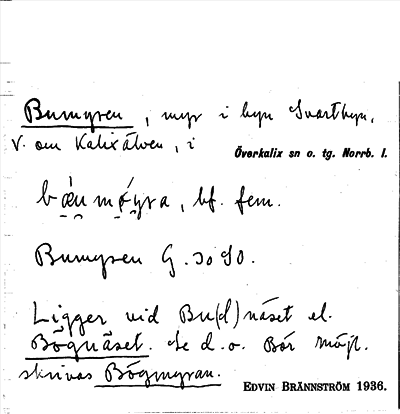 Bumyren, myr i byn Svartbyn,
V. om Kalixälven, i
Överkalix sn o. tg. Norrb. l.
bf. fem.
Bumyren G. 30 SO.
Ligger vid Bu(d)näset el.
Bögnäset. Se d. o. Bör möjl.
skrivas Bögmyran.
EDVIN BRÄNNSTRÖM 1936.